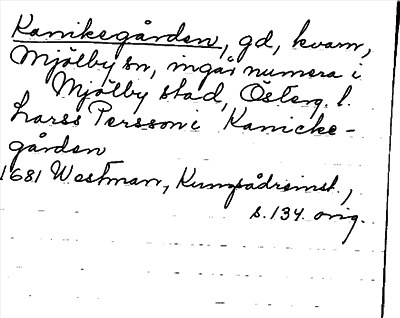 Kanikegården, gd, kvarn,
Mjölby sn, ingår numera i
Mjölby stad, Österg. l.
Larss Persson i Kanicke-
gården
1681 Westman, Kungsådreinst.,
s. 134. orig.